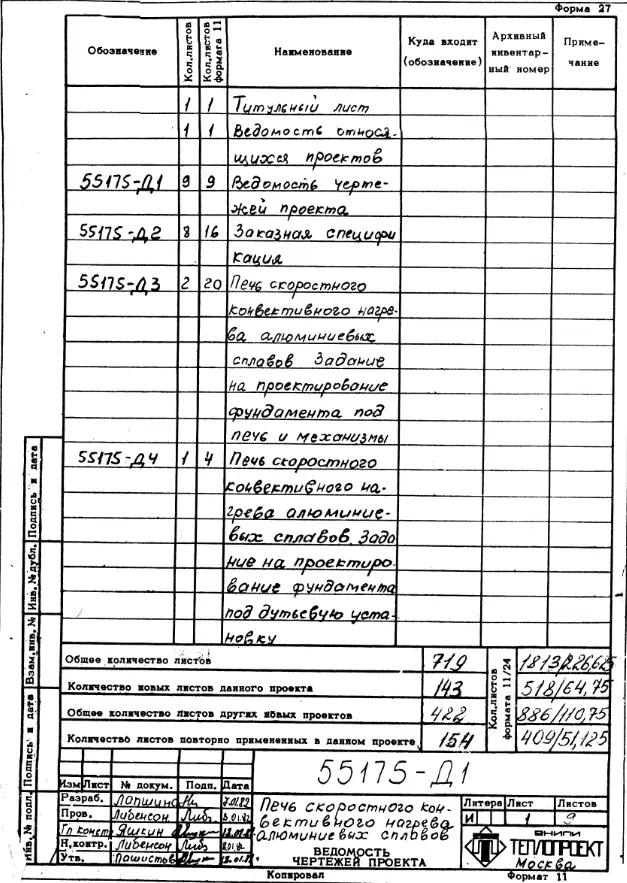 Форма 27
Обозначение Кол.листов Кол.листов формата 11 Наименование Куда входит (обозначение) Архивный инвентар- ный номер Приме- чание
1 1 Титульный лист
1 1 Ведомость относя-
щихся проектов
55175-Д1 9 9 Ведомость черте-
жей проекта
55175-Д2 8 16 Заказная специфи
кация
55175-Д3 2 20 Печь скоростного
конвективного нагре-
ва алюминиевых
сплавов Задание
на проектирование
фундамента под
печь и механизмы
55175-Д4 1 4 Печь скоростного
конвективного на-
грева алюминие-
вых сплавов. Зада
ние на проектиро-
вание фундамента
под дутьевую уста-
новку
Общее количество листов 719
Количество новых листов данного проекта 143
Общее количество листов других новых проектов 422
Количество листов повторно примененных в данном проекте 154
Кол.листов формата 11/24
1813/226,625
518/64,75
886/110,75
409/51,125
Инв.№ подл. Подпись и дата Взам.инв.№ Инв.№ дубл. Подпись и дата
55175-Д1
Изм Лист № докум. Подп. Дата
Разраб. Лапшина
Пров. Либенсон
Гл конст Яшкин
Н.контр. Либенсон
Утв.
Печь скоростного кон-
вективного нагрева
алюминиевых сплавов
ВЕДОМОСТЬ
ЧЕРТЕЖЕЙ ПРОЕКТА
Литера Лист Листов
И 1 9
ВНИПИ
ТЕПЛОПРОЕКТ
Москва
Копировал Формат 11